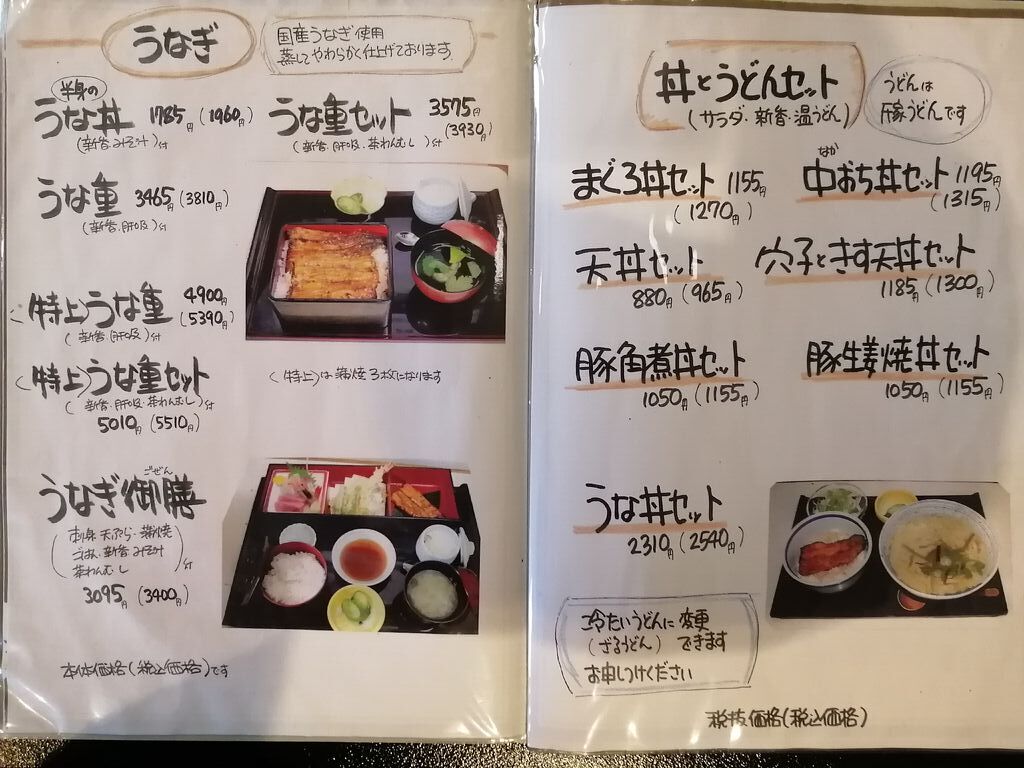 うなぎ
国産うなぎ使用
蒸してやわらかく仕上げております。
半身の
うな丼 1785円 (1960円)
(新香.みそ汁)付
うな重セット 3575円
(3930円)
(新香.肝吸.茶わんむし)付
うな重 3465円(3810円)
(新香.肝吸)付
(特上)うな重 4900円
(5390円)
(新香.肝吸)付
(特上)うな重セット
(新香.肝吸.茶わんむし)付
5010円(5510円)
(特上)は蒲焼3枚になります
ごぜん
うなぎ御膳
(刺身.天ぷら.蒲焼
ごはん.新香.みそ汁
茶わんむし)付
3095円 (3400円)
本体価格(税込価格)です
丼とうどんセット
(サラダ・新香・温うどん)
うどんは
豚うどんです
まぐろ丼セット 1155円
(1270円)
なか
中おち丼セット 1195円
(1315円)
天丼セット
880円(965円)
穴子ときす天丼セット
1185円(1300円)
豚角煮丼セット
1050円(1155円)
豚生姜焼丼セット
1050円(1155円)
うな丼セット
2310円(2540円)
冷たいうどんに変更
(ざるうどん) できます
お申しつけください
税抜価格(税込価格)